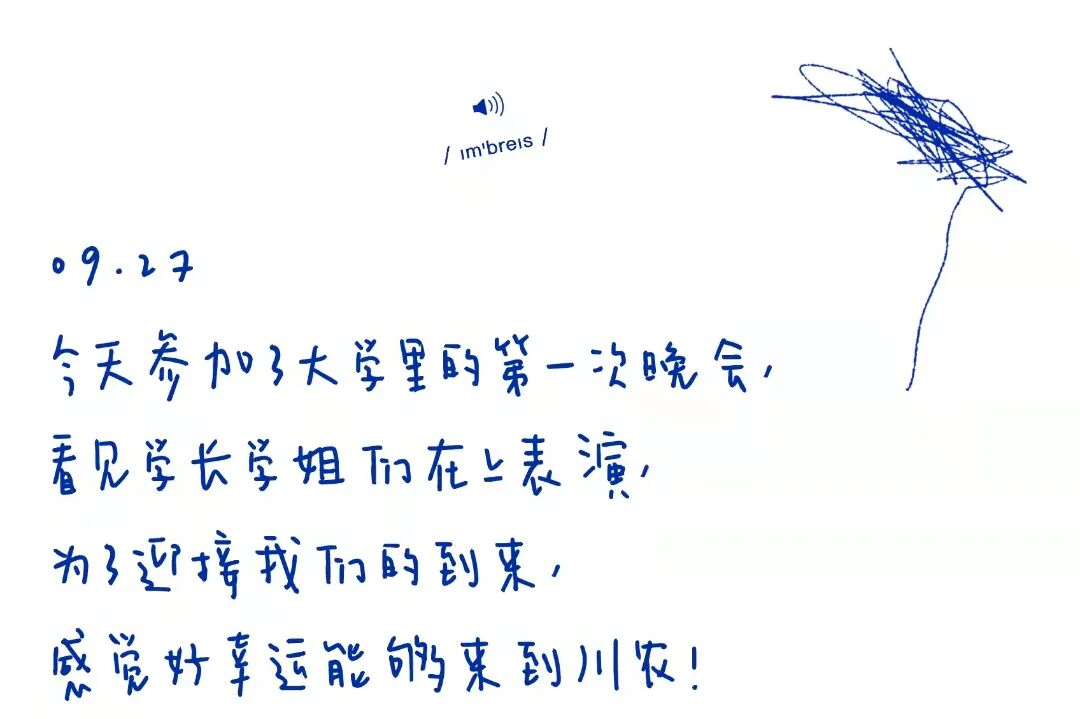 / ım'breıs /
09.27
今天参加了大学里的第一次晚会，
看见学长学姐们在上表演，
为了迎接我们的到来，
感觉好幸运能够来到川农！